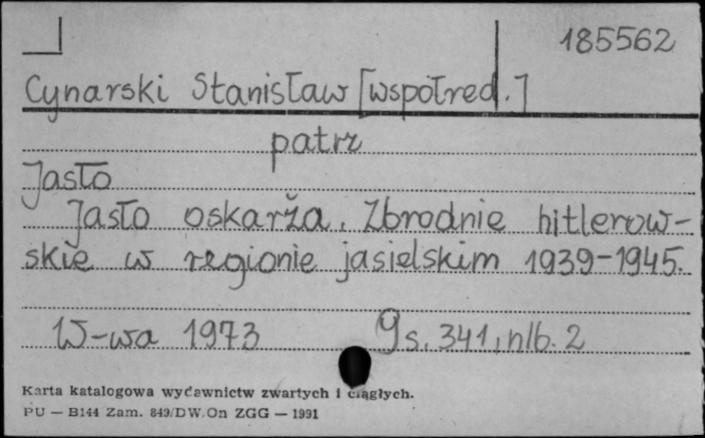 185562
Cynarski Stanisław [współred.]
patrz
Jasło
Jasło oskarża. Zbrodnie hitlerow-
skie w regionie jasielskim 1939-1945.
W-wa 1973 s. 341, nlb. 2
Karta katalogowa wydawnictw zwartych i ciągłych.
PU — B144 Zam. 849/DW.On ZGG — 1991